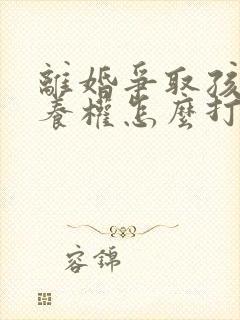 離婚爭取孩
養權怎麼打
容錦